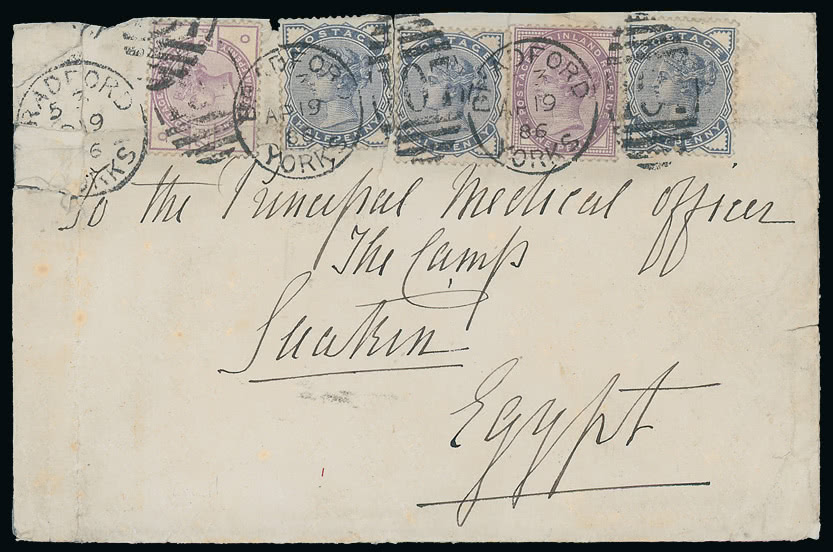 BRADFORD YORKS
BRADFORD AP 19 86 YORKS
BRADFORD AP 19 86 YORKS
POSTAGE
HALFPENNY
POSTAGE
HALFPENNY
POSTAGE & INLAND REVENUE
POSTAGE
HALFPENNY
To the Principal Medical officer
The Camp
Suakin
Egypt